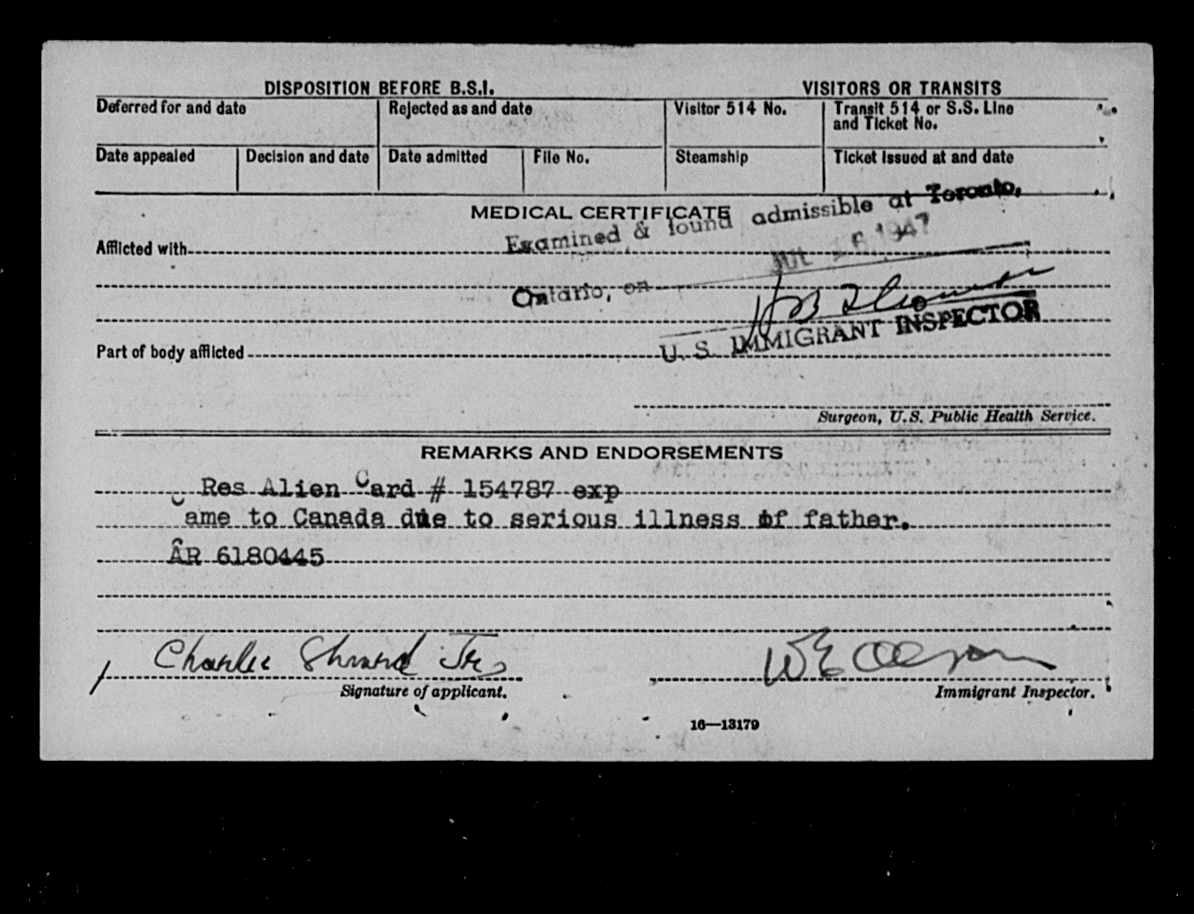 DISPOSITION BEFORE B.S.I. VISITORS OR TRANSITS
Deferred for and date Rejected as and date Visitor 514 No. Transit 514 or S.S. Line and Ticket No.
Date appealed Decision and date Date admitted File No. Steamship Ticket issued at and date
MEDICAL CERTIFICATE
Examined & found admissible at Toronto,
Afflicted with
JUL 16 1947
Ontario, on
U. S. IMMIGRANT INSPECTOR
Part of body afflicted
Surgeon, U.S. Public Health Service.
REMARKS AND ENDORSEMENTS
Res Alien Card # 154787 exp
Came to Canada due to serious illness of father.
AR 6180445
Charlie
Signature of applicant. Immigrant Inspector.
16—13179